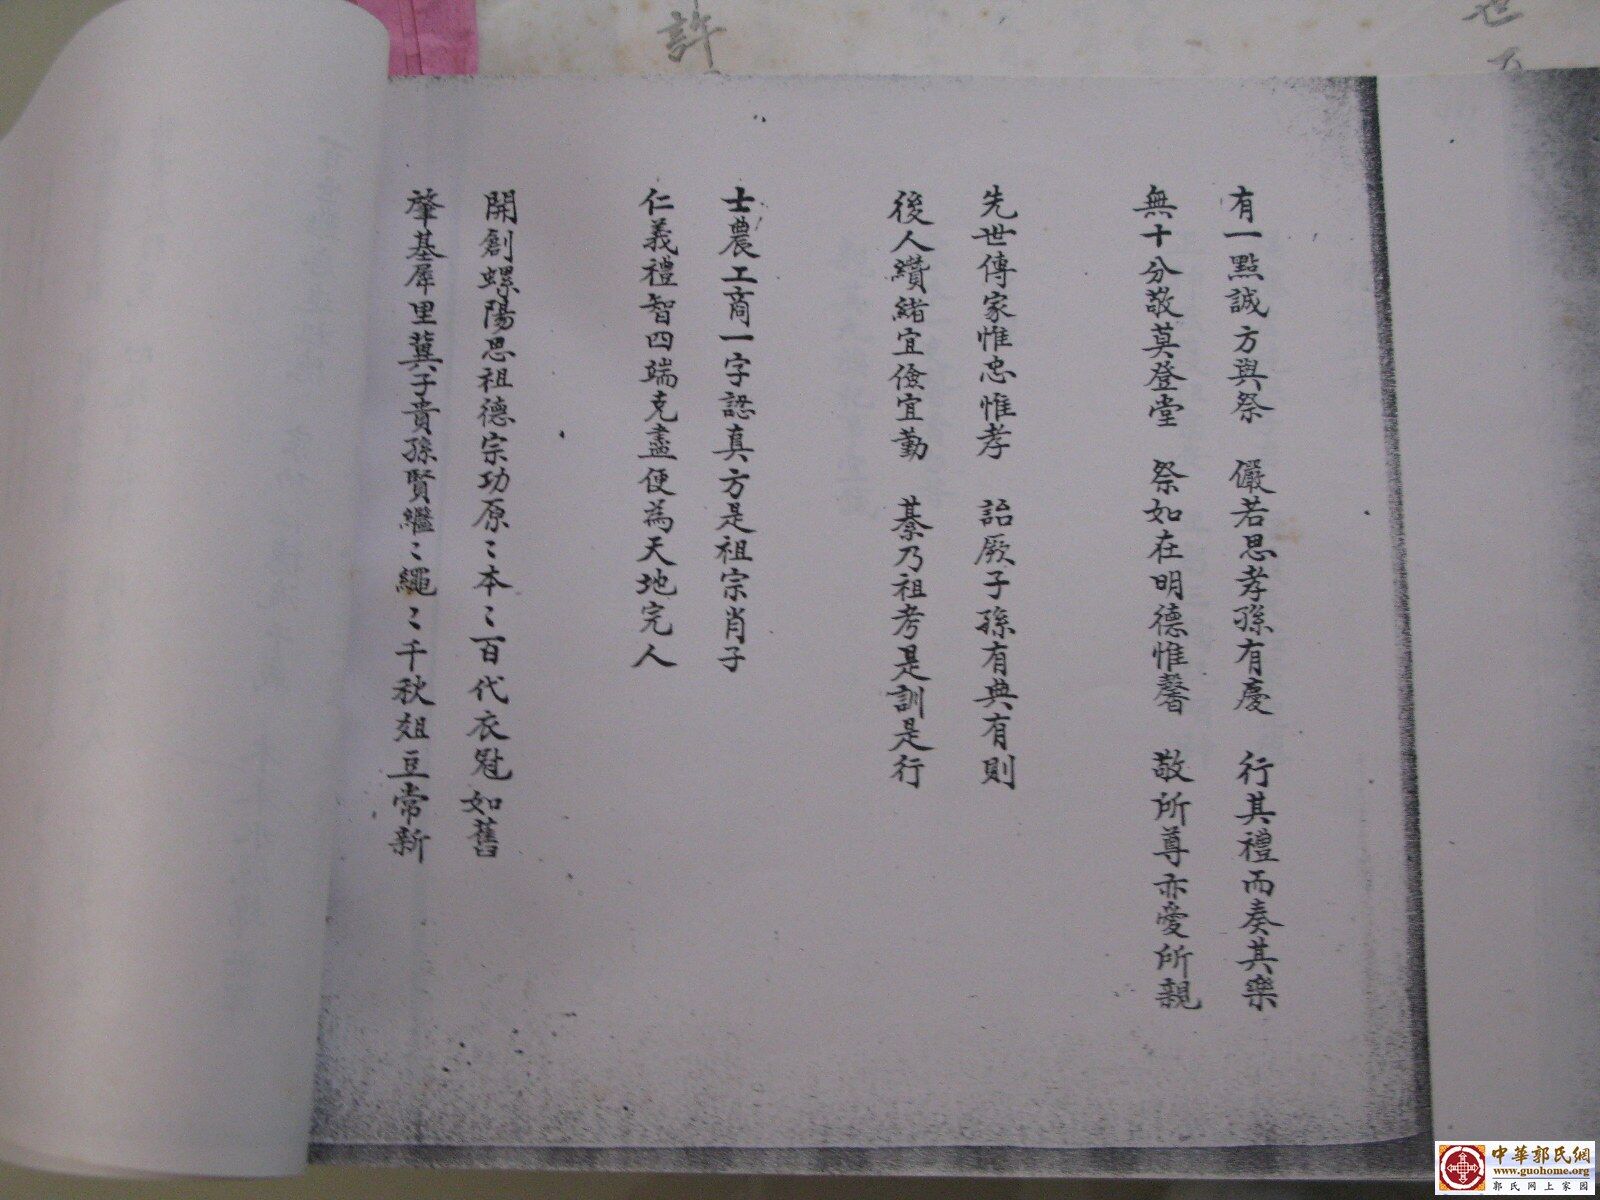 有一點誠方與祭　儼若思孝孫有慶　行其禮而奏其樂
無十分敬莫登堂　祭如在明德惟馨　敬所尊亦愛所親
先世傳家惟忠惟孝　詒厥子孫有典有則
後人纘緒宜儉宜勤　綦乃祖考是訓是行
士農工商一字認真方是祖宗肖子
仁義禮智四端克盡便為天地完人
開創螺陽思祖德宗功原〻本〻百代衣冠如舊
肇基犀里冀子貴孫賢繼〻繩〻千秋俎豆常新
許
世
中華郭氏網
www.guohome.org
郭氏网上家园